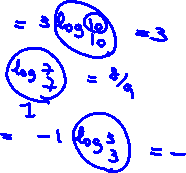 = 3 log 10/10 = 3
log 7/7 = 8/9
1
= -1 log 3/3 = -